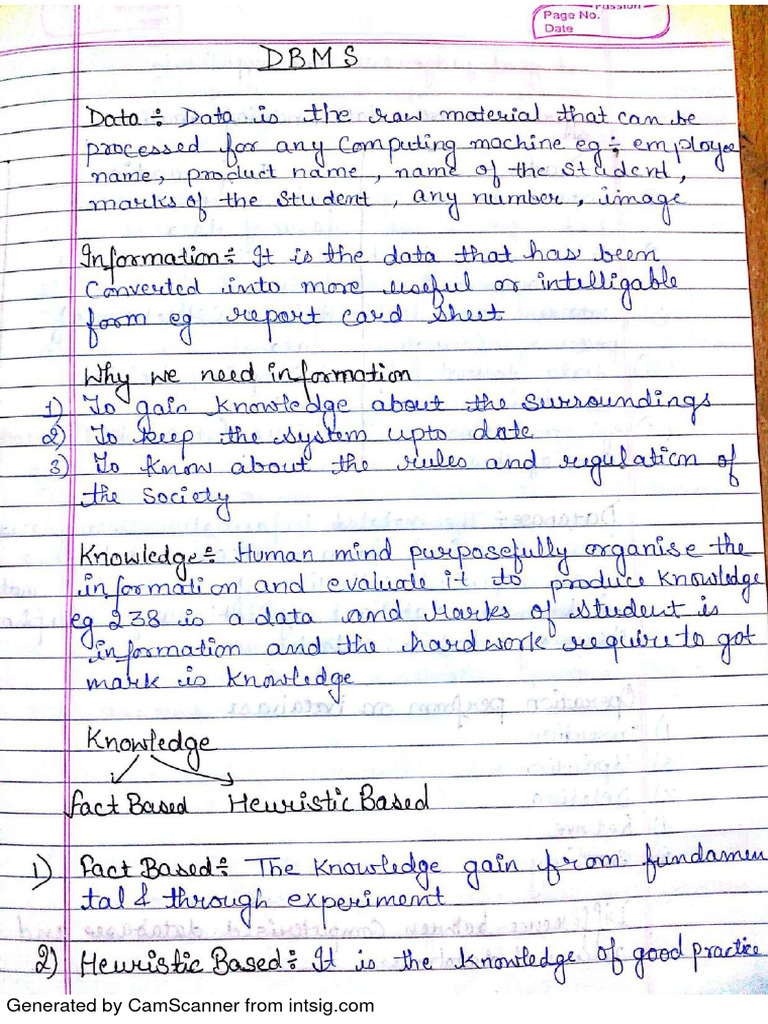 Passion
Page No.
Date
DBMS
Data ÷ Data is the raw material that can be
processed for any Computing machine eg ÷ employee
name, product name, name of the student,
marks of the student, any number, image
Information ÷ It is the data that has been
Converted into more useful or intelligable
form eg report card sheet
Why we need information
1) To gain knowledge about the surroundings
2) To keep the system upto date
3) To know about the rules and regulation of
the society
Knowledge ÷ Human mind purposefully organise the
information and evaluate it to produce knowledge
eg 238 is a data and Marks of student is
information and the hardwork require to got
mark is knowledge
Knowledge
Fact Based Heuristic Based
1) Fact Based ÷ The knowledge gain from fundamen
tal & through experiment
2) Heuristic Based ÷ It is the knowledge of good practice
Generated by CamScanner from intsig.com